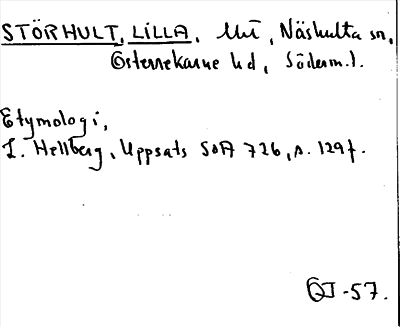 STÖRHULT, LILLA, Näshulta sn,
Österrekarne hd, Söderm.l.
Etymologi,
L. Hellberg, Uppsats SOA 726, s. 129f.
-57.